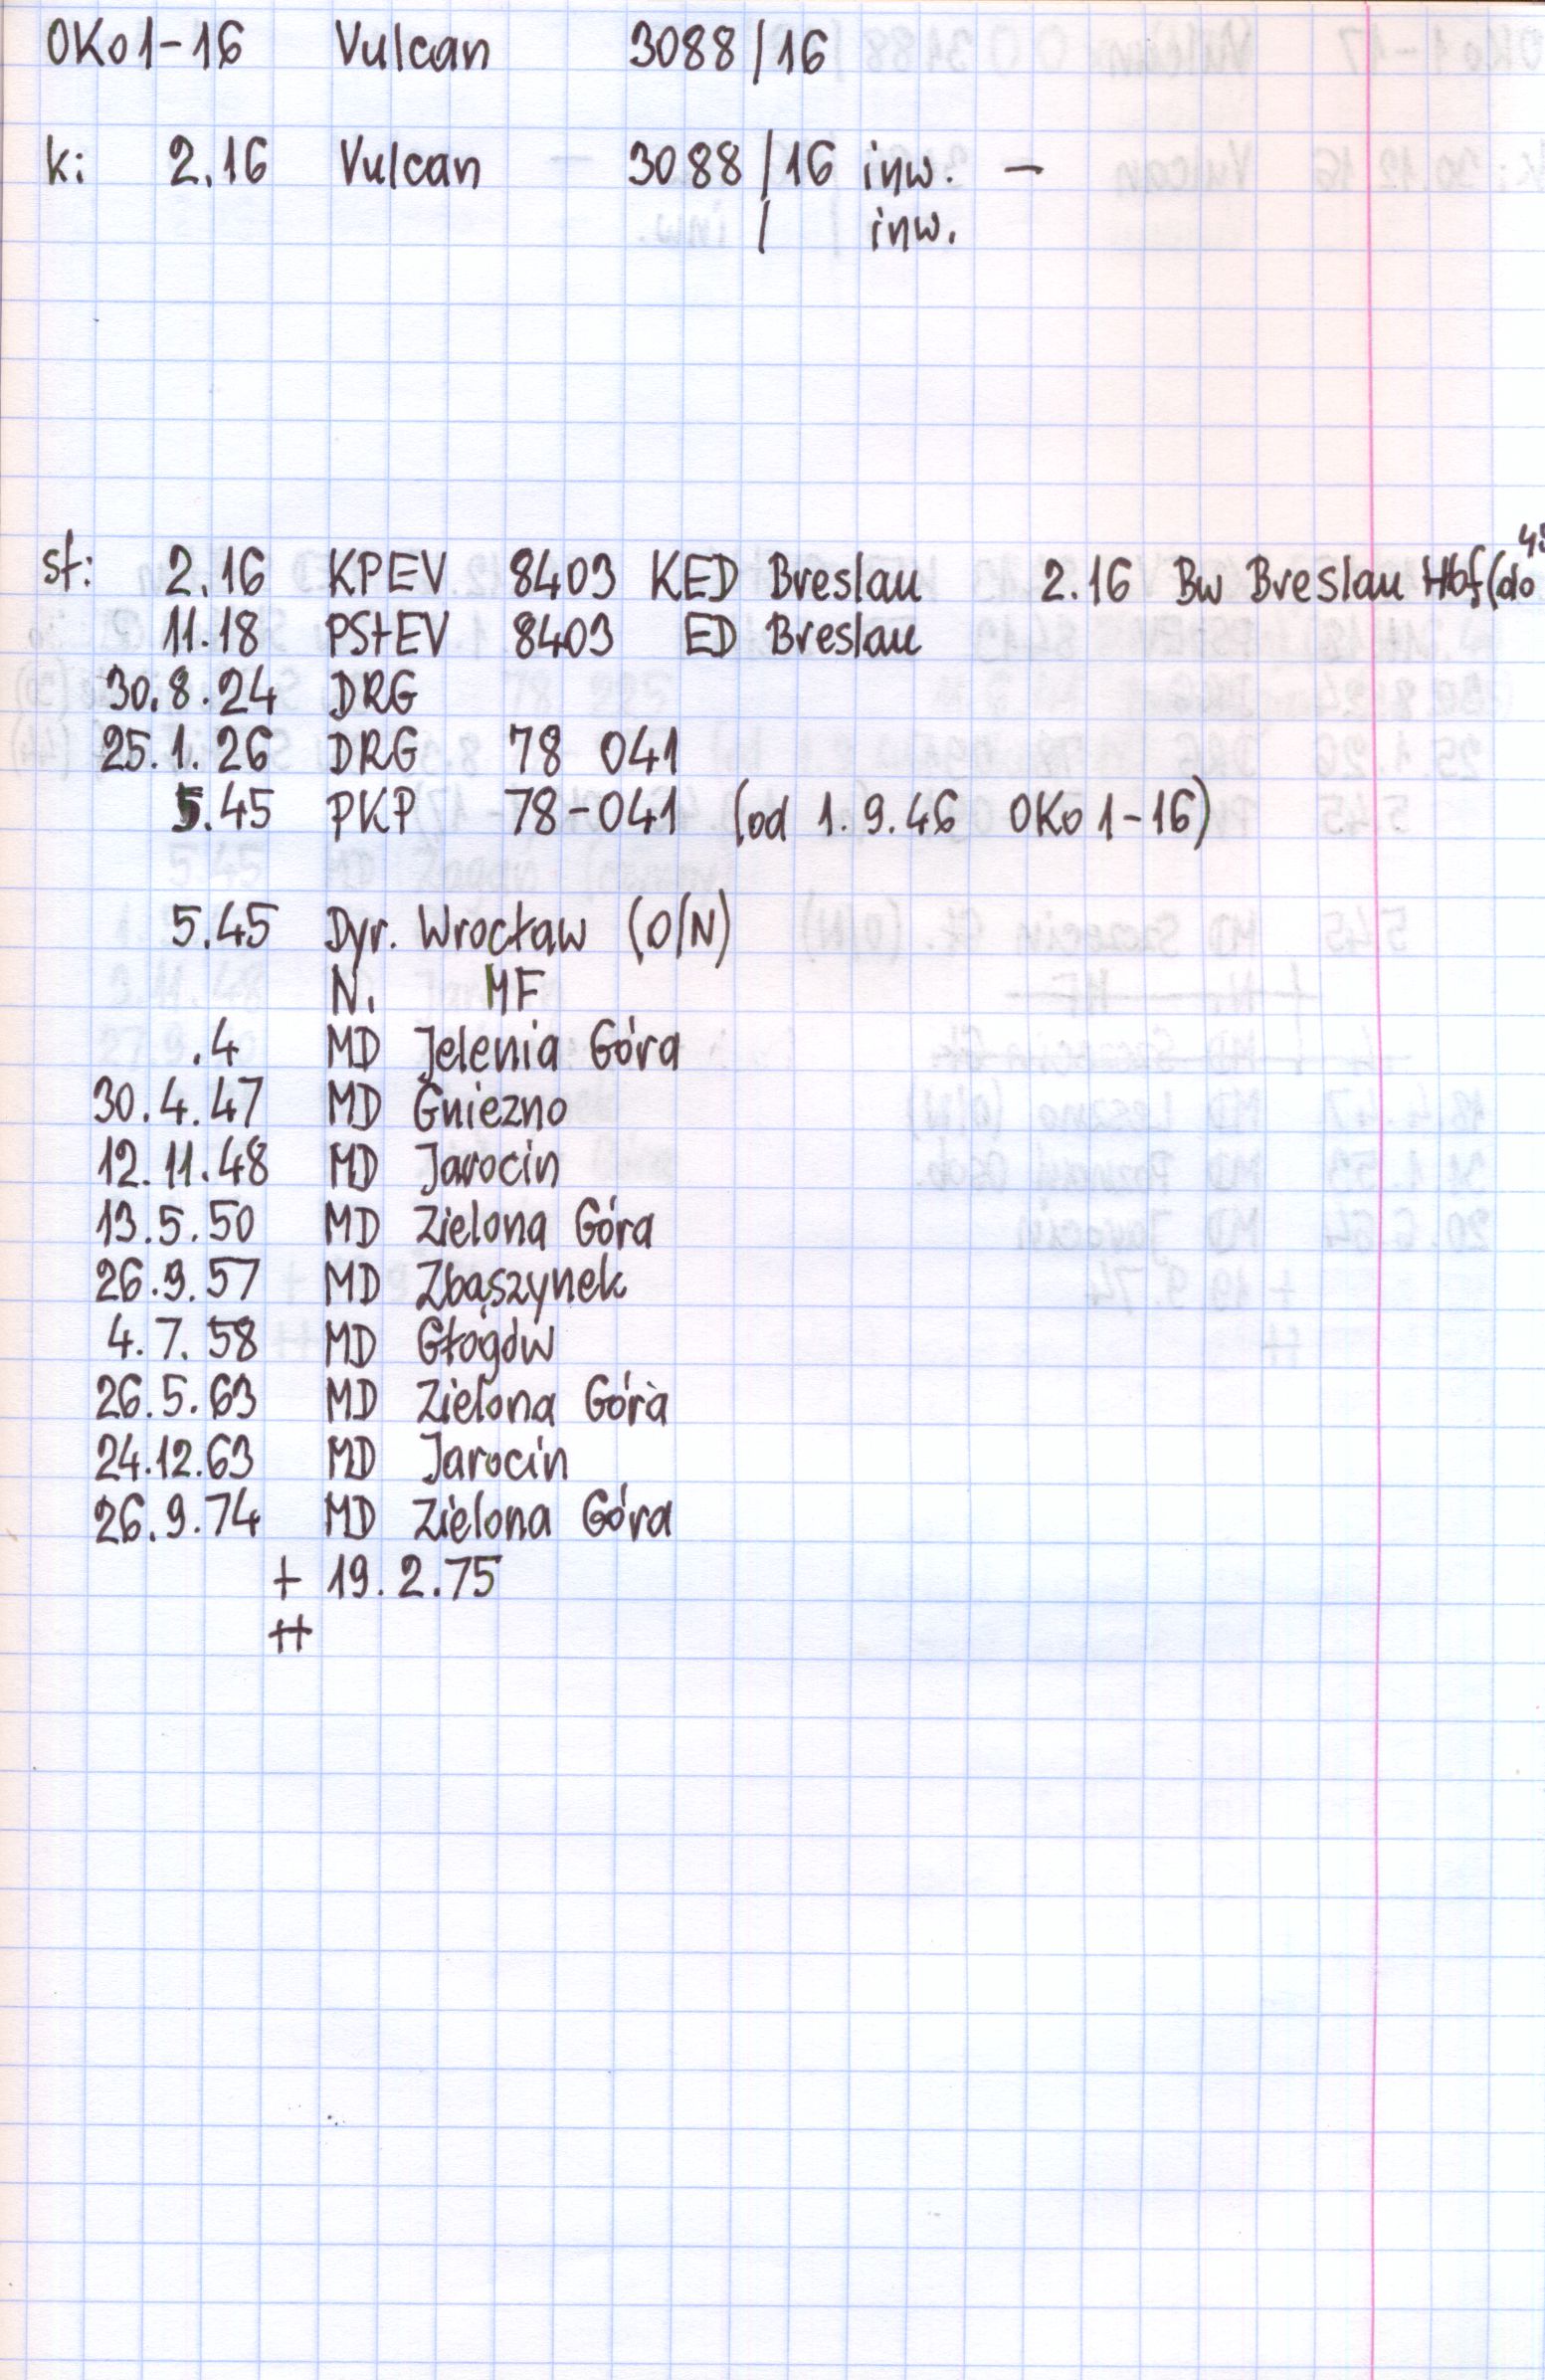 OKo1-16 Vulcan 3088/16
k: 2.16 Vulcan 3088/16 inw. -
/ inw.
st: 2.16 KPEV 8403 KED Breslau 2.16 Bw Breslau Hbf (do
11.18 PStEV 8403 ED Breslau
30.8.24 DRG
25.1.26 DRG 78 041
5.45 PKP 78-041 (od 1.9.46 OKo1-16)
5.45 Dyr. Wrocław (O/N)
N. MF
.4 MD Jelenia Góra
30.4.47 MD Gniezno
12.11.48 MD Jarocin
13.5.50 MD Zielona Góra
26.9.57 MD Zbąszynek
4.7.58 MD Głogów
26.5.63 MD Zielona Góra
24.12.63 MD Jarocin
26.9.74 MD Zielona Góra
+ 19.2.75
++